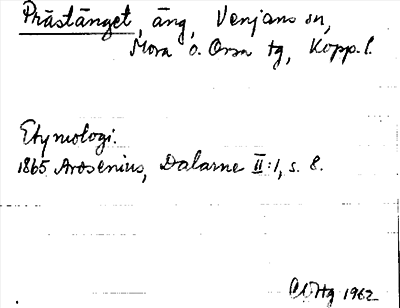 Prästänget, äng, Venjans sn,
Mora o. Orsa tg, Kopp. l.
Etymologi.
1865 Arosenius, Dalarne II:1, s. 8.
1962